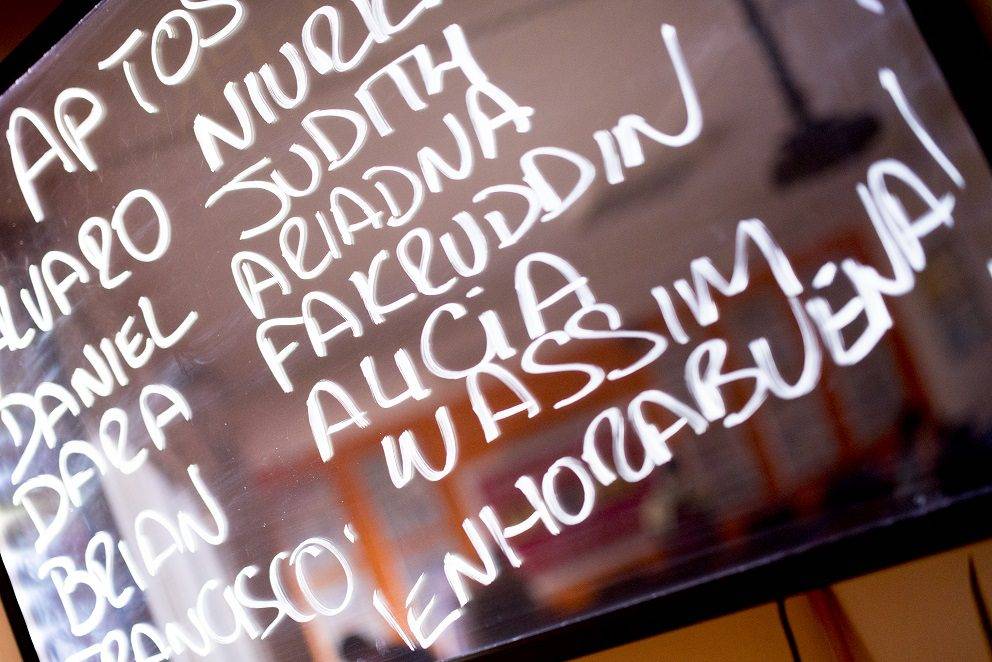 APTOS
ALVARO
DANIEL
DARA
BRIAN
FRANCISCO
NIURK
JUDITH
ARIADNA
FAKRUDDIN
ALICiA
WASSIM
¡ENHORABUENA!